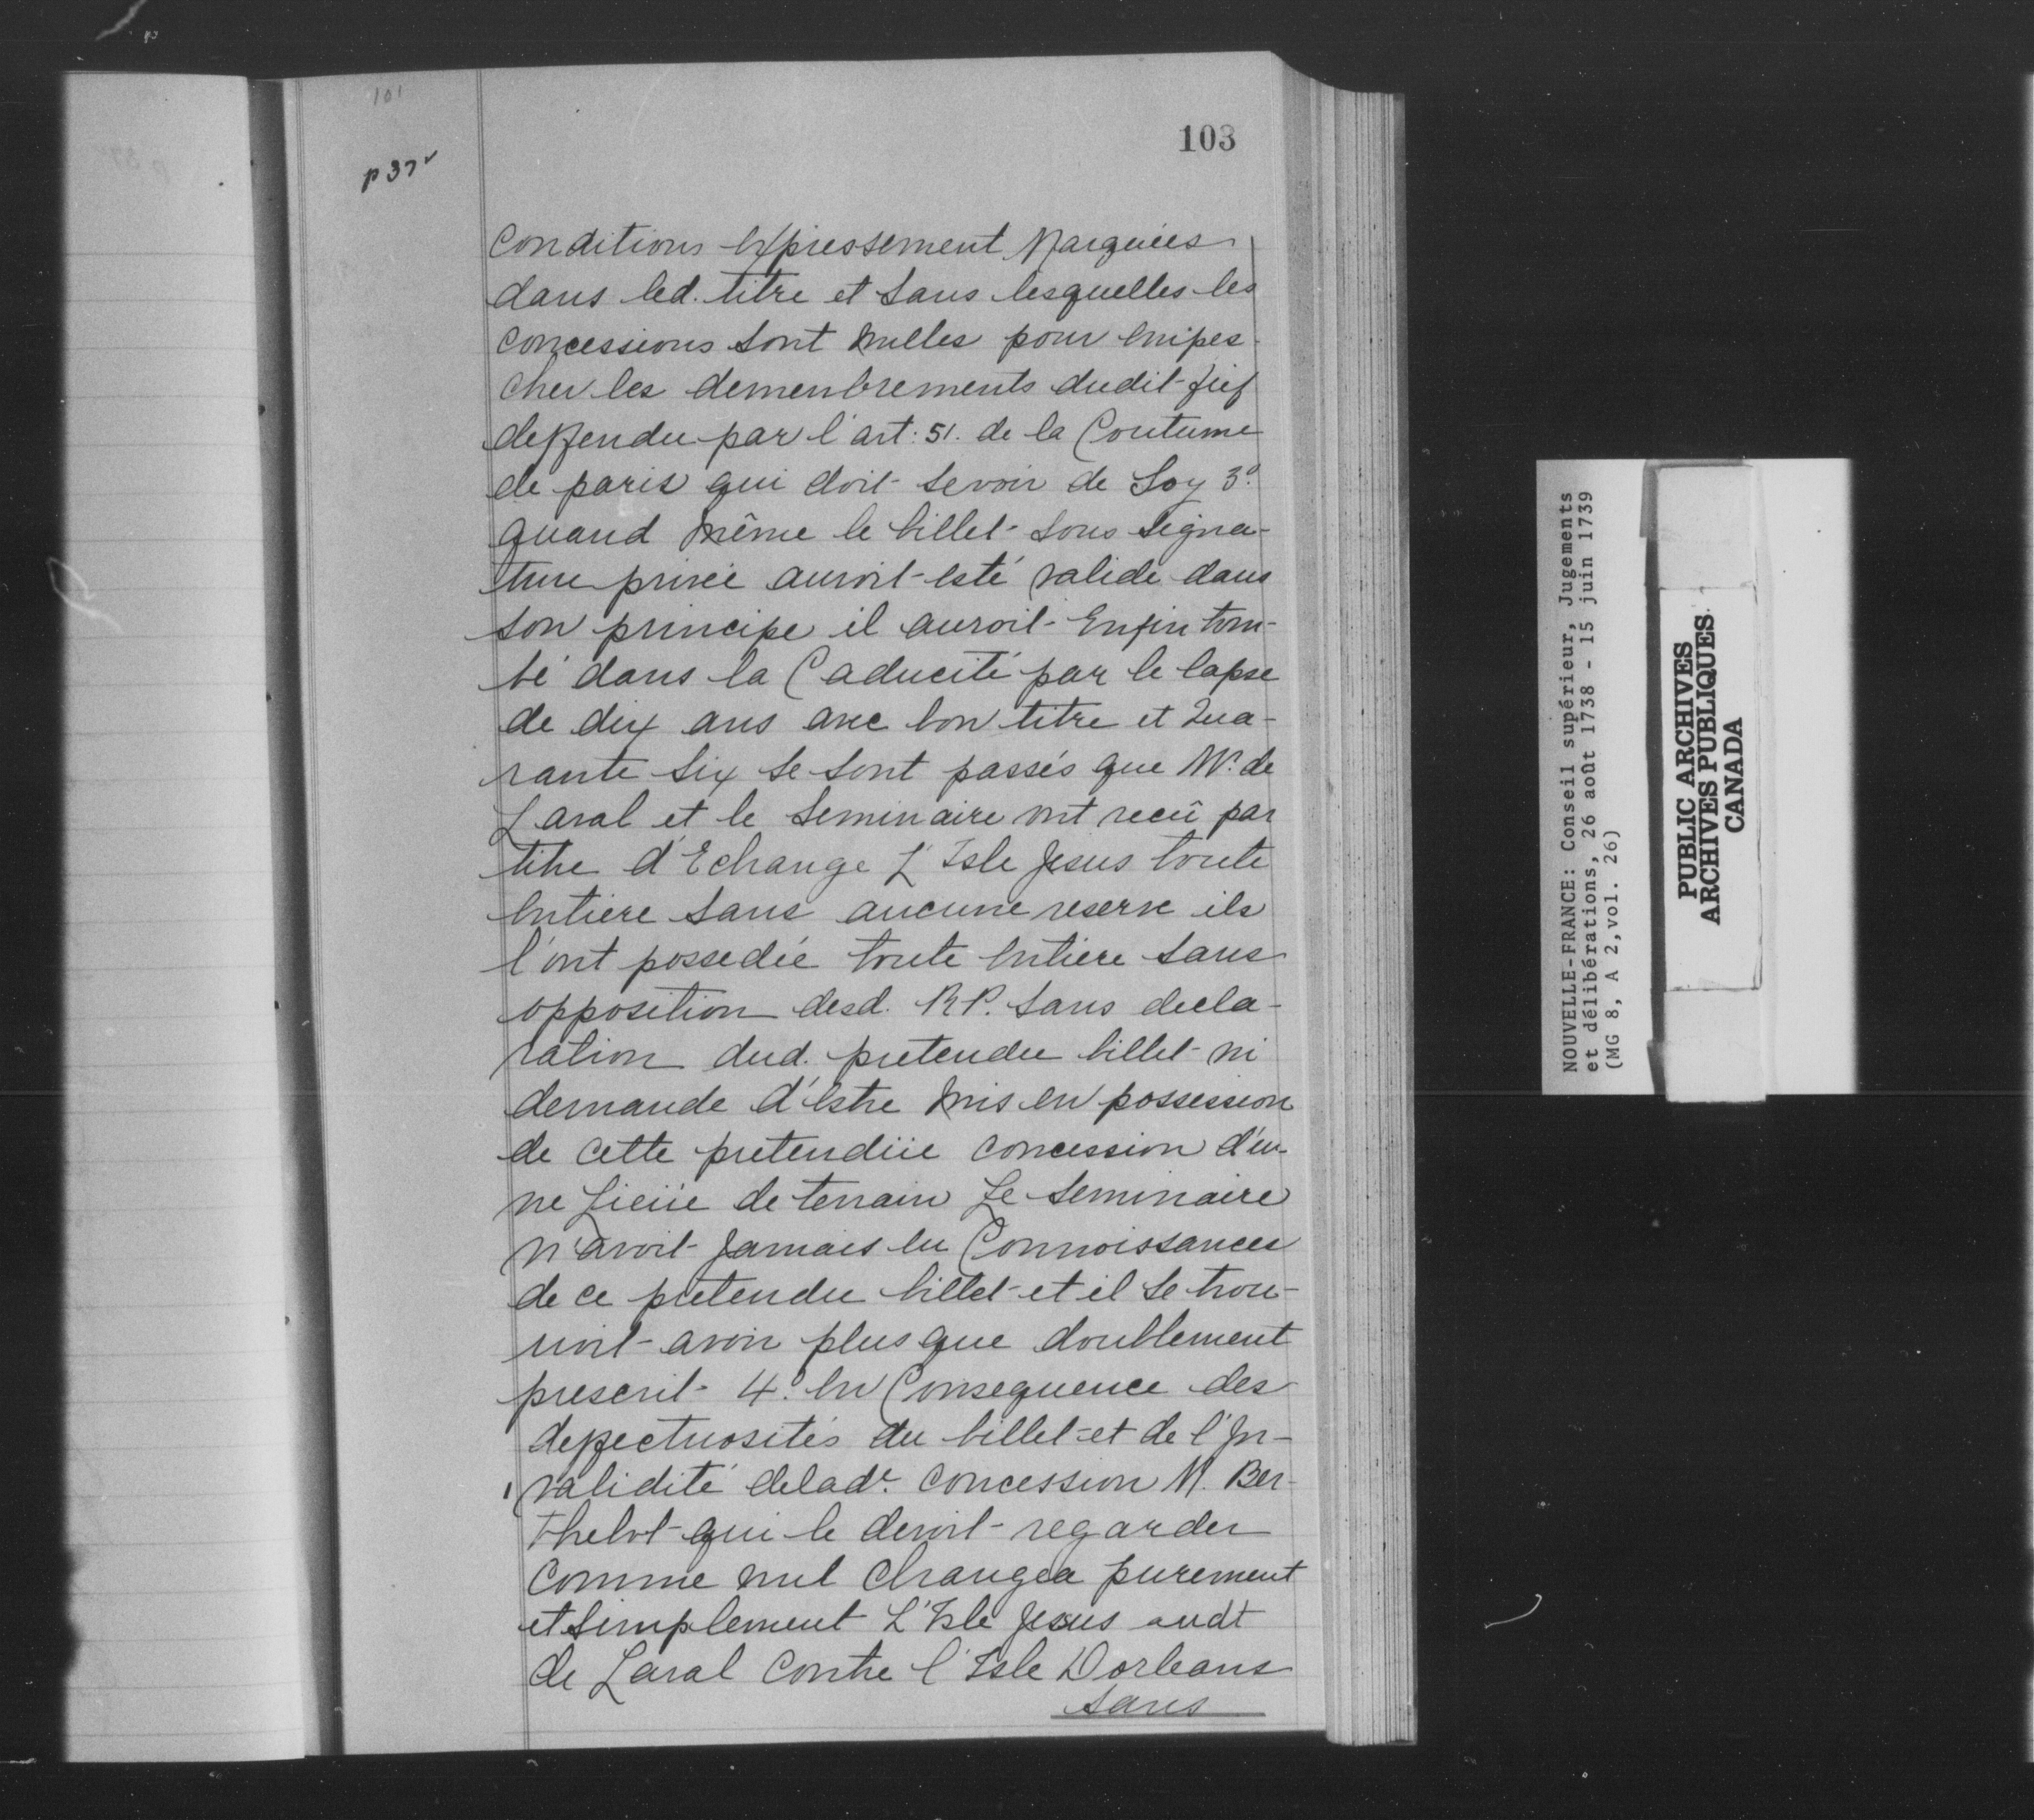 101
103
p 37v
Conditions Expressement Marquées
dans led. titre et sans lesquelles les
Concessions sont nulles pour empes-
cher les demenbrements dudit fief
deffendu par l'art: 51. de la Coutume
de paris qui doit sevoir de Soy 3.º
quand même le billet sous signa-
ture privée auroit esté valide dans
son principe il auroit Enfin tom-
bé dans la Caducité par le lapse
de dix ans avec bon titre et Qua-
rante six se sont passés que Mr. de
Laval et le Seminaire ont recû par
titre d'Echange L'Isle Jesus toute
Entiere sans aucune reserve ils
l'ont possedée toute Entiere sans
opposition desd. R.P. sans decla-
ration dud. pretendu billet ni
demande d'Estre mis en possession
de cette pretendüe concession d'u-
ne Lieüe de terrain Le Seminaire
n'avoit Jamais eu Connoissances
de ce pretendu billet et il se trou-
voit avoir plus que doublement
prescrit 4.º En Consequence des
deffectuosités du billet et de l'In-
validité delade. Concession M. Ber-
thelot qui le devoit regarder
Comme nul changea purement
et simplement L'Isle Jesus audt
de Laval Contre l'Isle Dorleans
sans
NOUVELLE-FRANCE: Conseil supérieur, Jugements
et délibérations, 26 août 1738 - 15 juin 1739
(MG 8, A 2,vol. 26)
PUBLIC ARCHIVES
ARCHIVES PUBLIQUES
CANADA